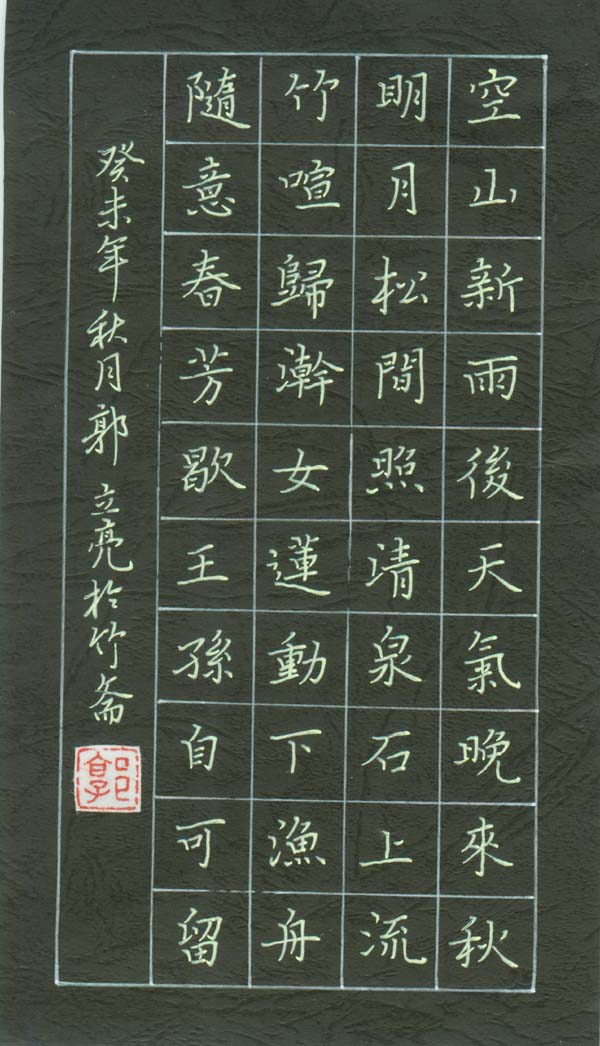 空山新雨後天氣晚來秋
明月松間照清泉石上流
竹喧歸澣女蓮動下漁舟
隨意春芳歇王孫自可留
癸未年秋月郭立亮於竹斋
郭